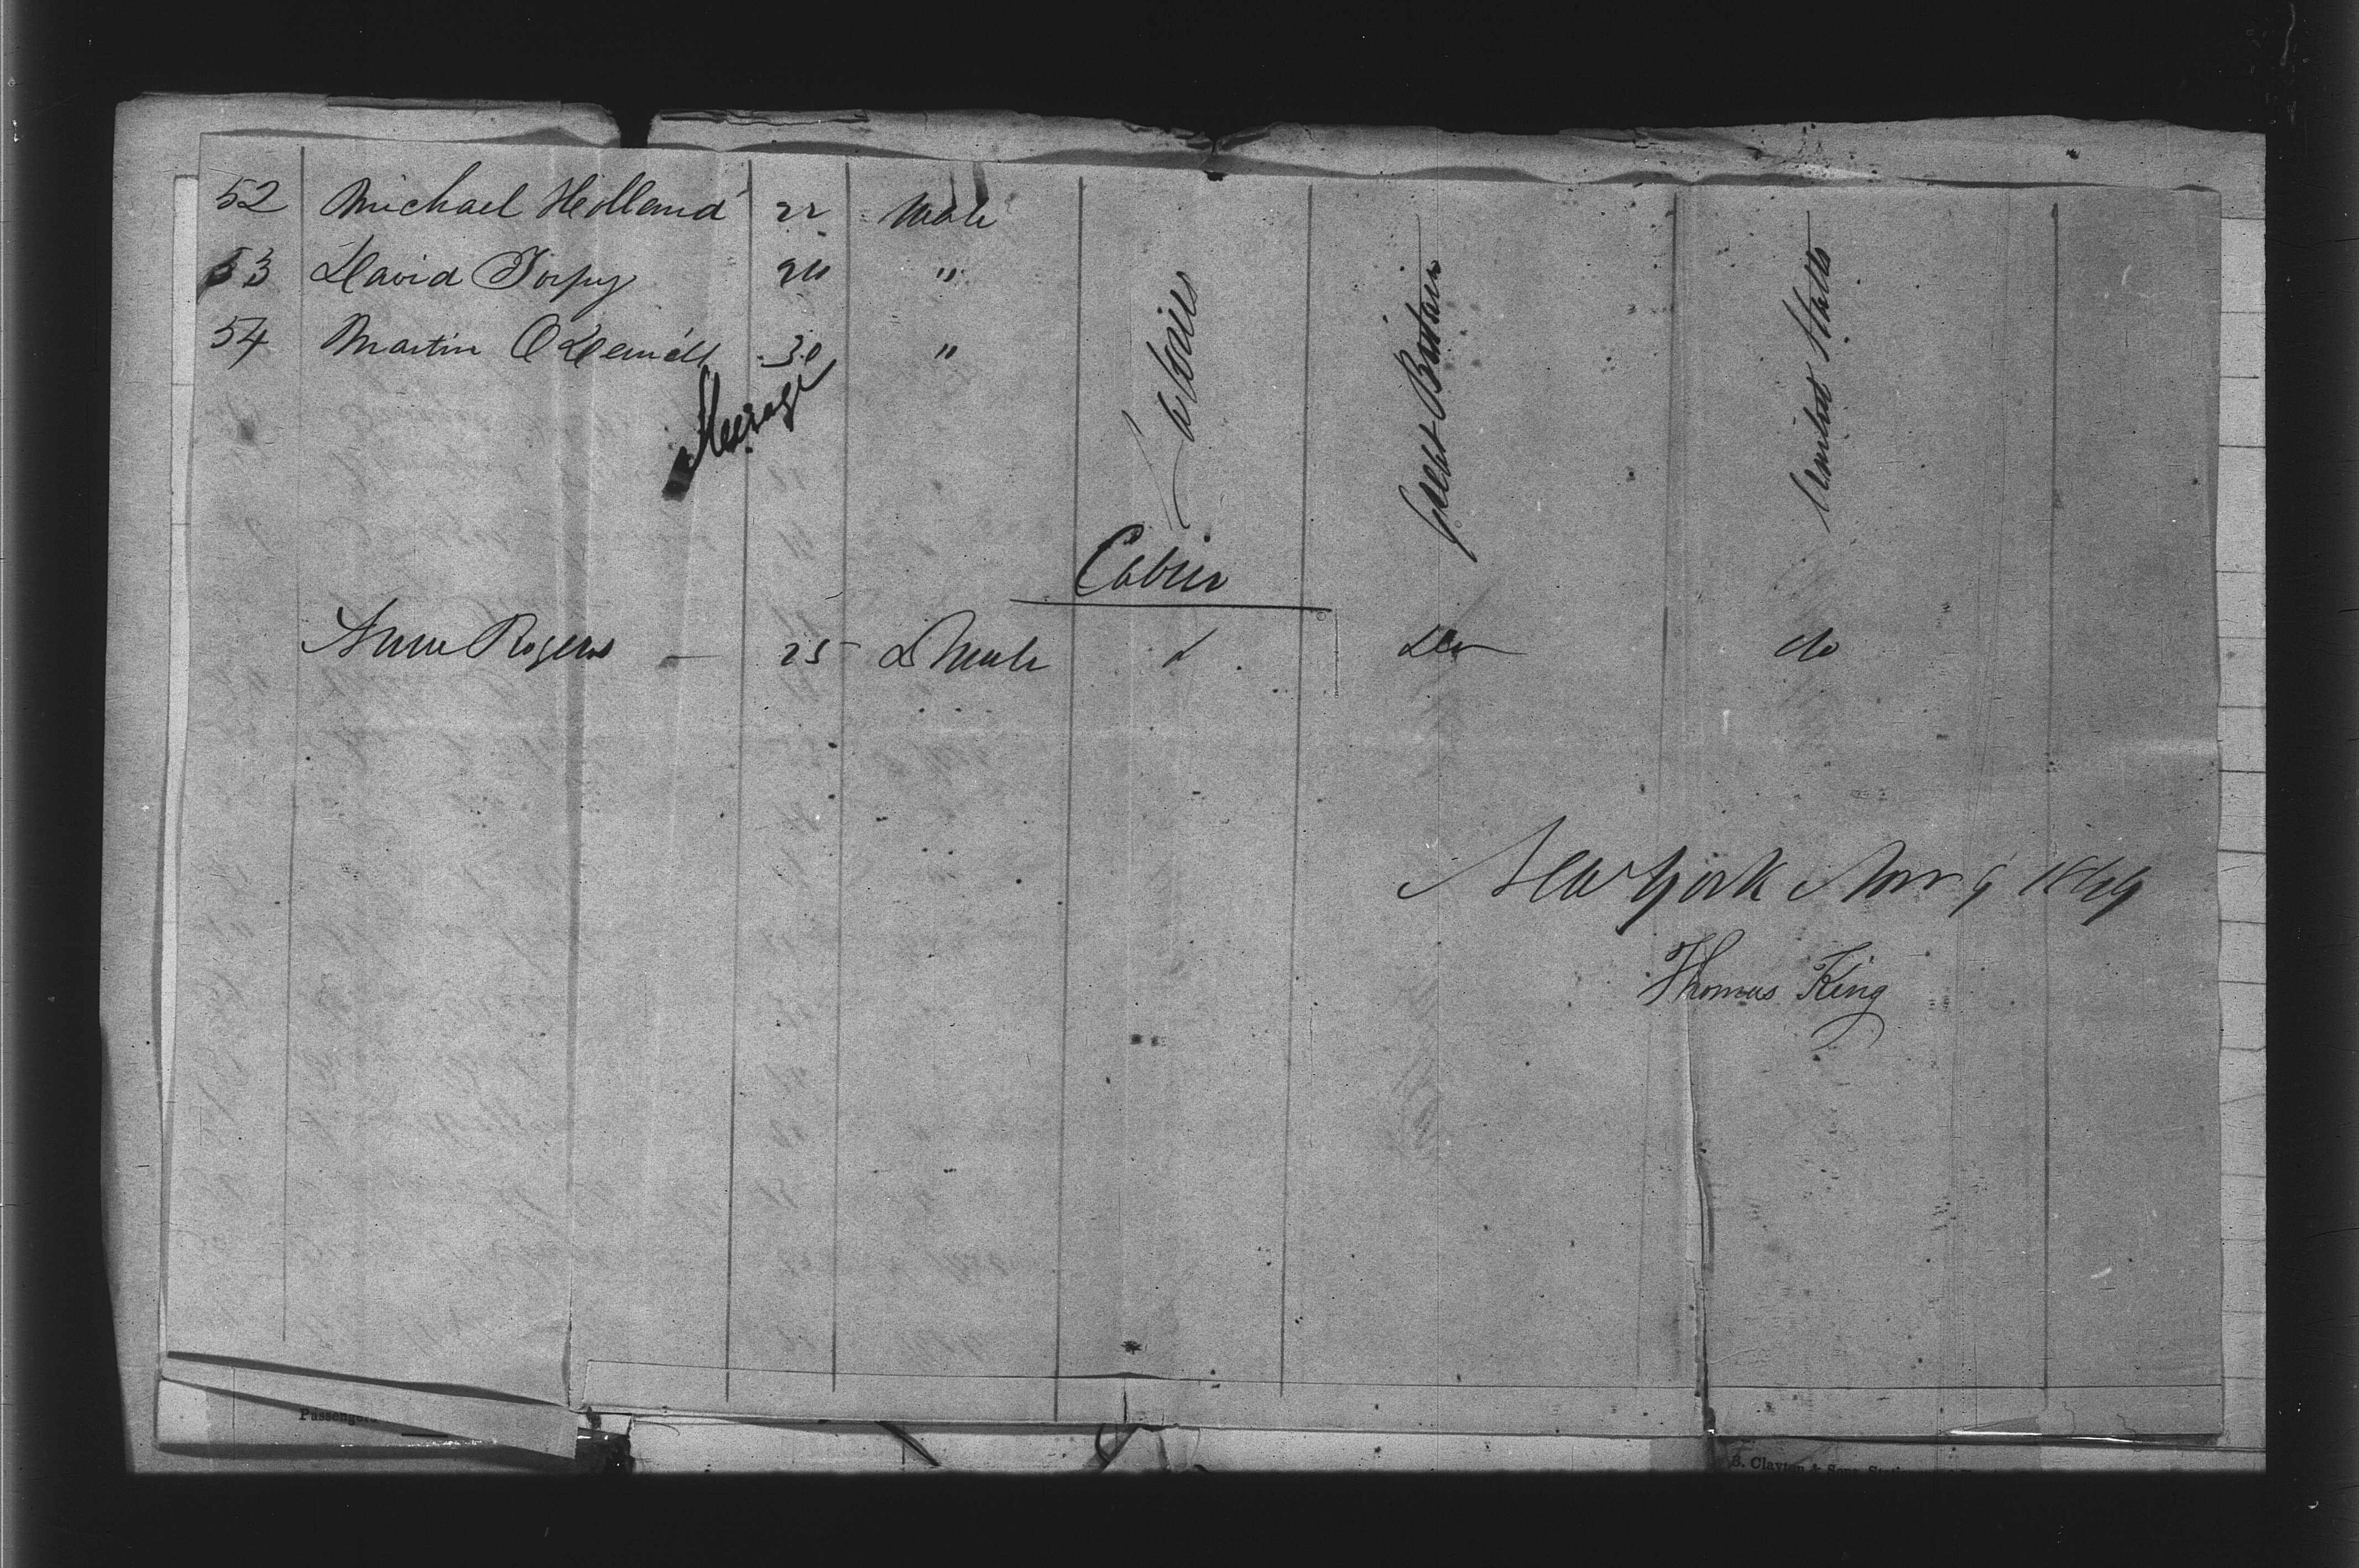 52 Michael Holland 22 Male
53 David Torpy 20 "
54 Martin O 30 "
Steerage
Labories
Great Britain
United States
Cabin
Anne Rogers — 25 do
New York Nov 9 1869
Thomas King
Passengers
B. Clayton & Sons,